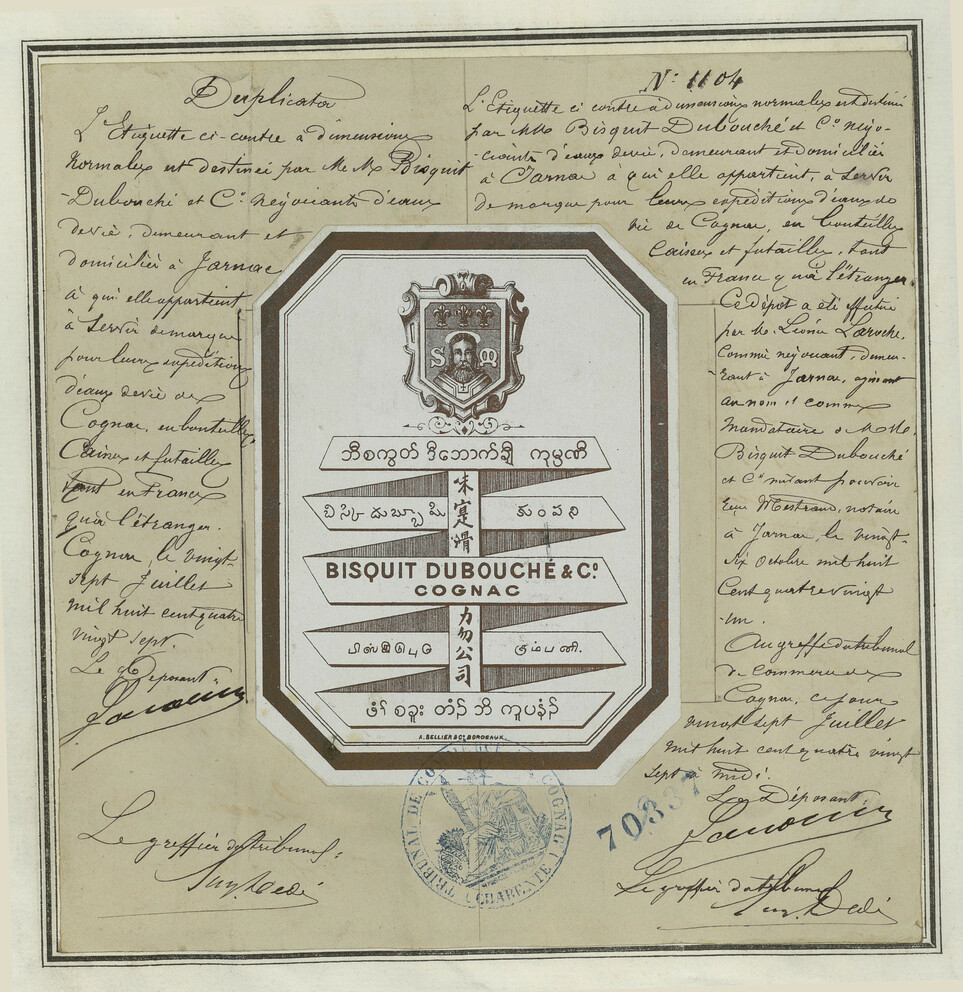 Duplicata
L'Etiquette ci-contre à dimensions
Normales est destinée par M.M. Bisquit
Dubouché et Cº négociants d'eaux
devie, demeurant et
domiciliés à Jarnac
à qui elle appartient
à Servir de marque
pour leurs expéditions
d'eaux devie de
Cognac, en bouteilles,
Caisses et futailles
tant en France
qu'à l'étranger.
Cognac, le vingt-
sept Juillet
mil huit cent quatre
vingt sept.
Le Déposant:
Le greffier du tribunal:
Nº 1104
L'Etiquette ci contre à dimensions normales est destinée
par MM Bisquit Dubouché et Cº négo-
-ciants d'eaux devie, demeurant et domiciliés
à Jarnac à qui elle appartient, à servir
de marque pour leurs expéditions d'eaux de
vie de Cognac, en bouteilles
Caisses et futailles, tant
en France qu'à l'étranger.
Ce dépôt a été effectué
par M. Léonce Laroche,
Commis négociant, demeu-
-rant à Jarnac, agissant
au nom et comme
Mandataire de MM.
Bisquit Dubouché
et Cº suivant pouvoir
reçu Mestraud, notaire
à Jarnac, le vingt-
six Octobre mil huit
Cent quatre vingt
-un.
Au greffe du tribunal
de Commerce de
Cognac, ce jour
vingt sept Juillet
mil huit cent quatre vingt
sept à midi.
Le Déposant:
Le greffier du tribunal
S M
ဘီစကွတ် ဒီဘောက်ချီ ကုမ္ပဏီ
కుంపని
BISQUIT DUBOUCHÉ & Cº
COGNAC
力勿公司
கும்பனி.
A. BELLIER & Cº BORDEAUX
TRIBUNAL DE COMMERCE DE COGNAC (CHARENTE)
70837